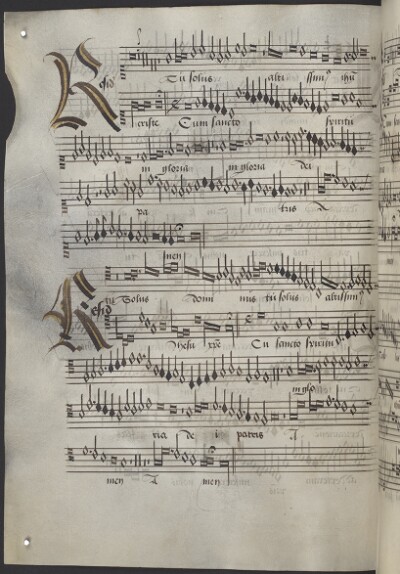 Resid
Tu solus alti ssim9 ihu
criste Cum sancto spiritu
in gloria in gloria dei
pa tris A
men
Resid
tu Solus domi nus tu solus altissim9
Jhesu xpe Cu sancto spiritu
in glo
ria de i patris A
men A men